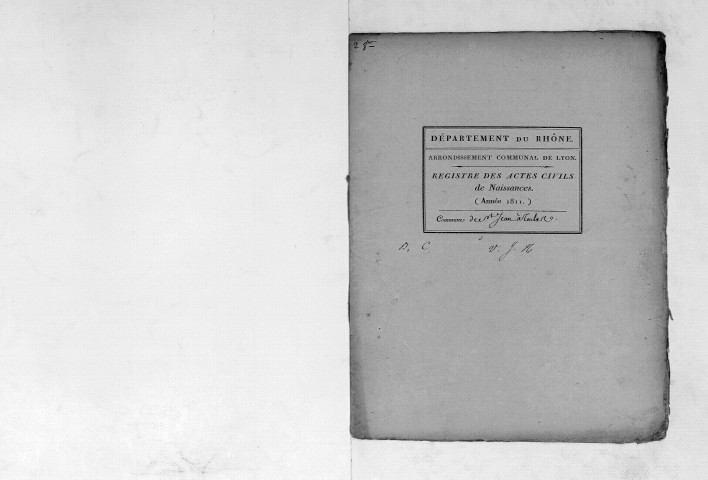 DÉPARTEMENT DU RHÔNE.
ARRONDISSEMENT COMMUNAL DE LYON.
REGISTRE DES ACTES CIVILS
de Naissances.
(Année 1811.)
Commune de St Jean